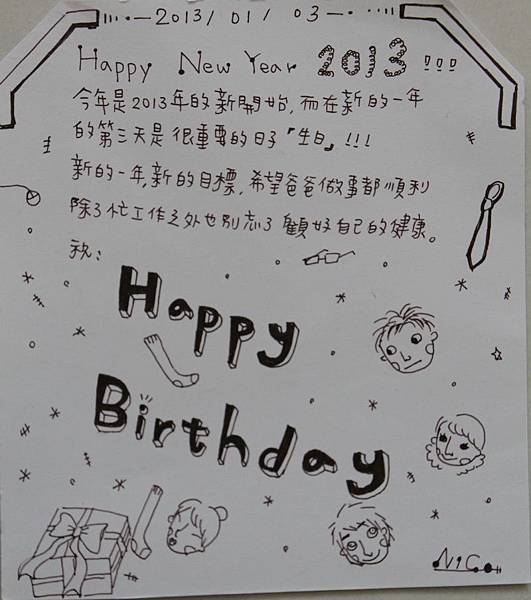 2013/01/03
Happy New Year 2013 !!!
今年是2013年的新開始,而在新的一年
的第三天是很重要的日子「生日」!!!
新的一年,新的目標,希望爸爸做事都順利
除了忙工作之外也別忘了顧好自己的健康。
祝:
Happy
Birthday
NiCo